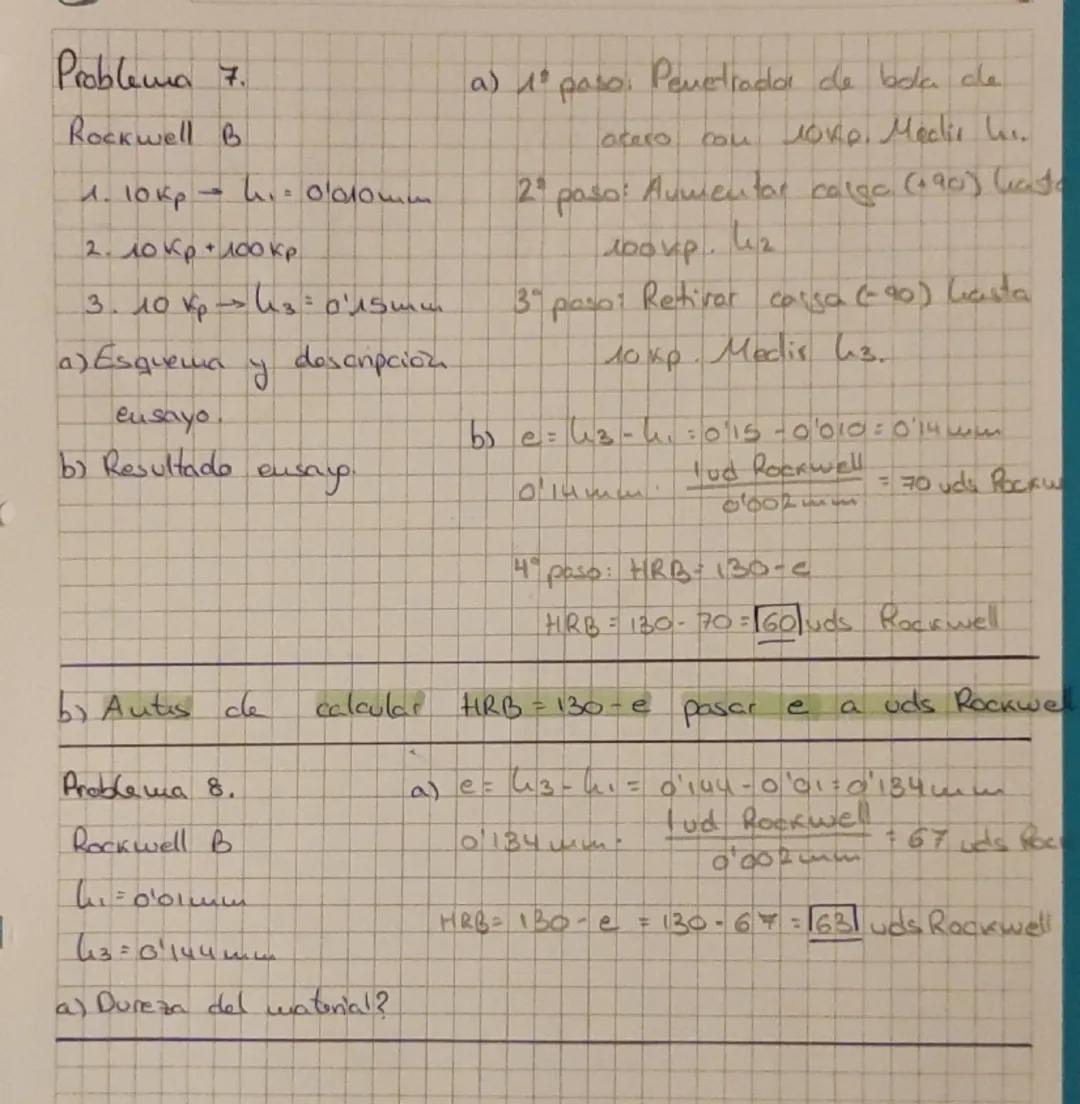 Problema 7.
Rockwell B
1. 10Kp → h₁ = 0'010mm
2. 10Kp + 100Kp
3. 10 Kp → h3 = 0'15mm
a) Esquema y descripción
ensayo.
b) Resultado ensayo.
a) 1º paso: Penetrador de bola de
acero con 10Kp. Medir h₁.
2º paso: Aumentar carga (+90) hasta
100Kp. h2
3º paso: Retirar carga (-90) hasta
10Kp. Medir h3.
b) e = h3 - h₁ = 0'15 - 0'010 = 0'14mm
0'14mm · 1ud Rockwell / 0'002mm = 70 uds Rockw
4º paso: HRB = 130-e
HRB = 130 - 70 = 60 uds Rockwell
b) Antes de calcular HRB = 130-e pasar e a uds Rockwel
Problema 8.
Rockwell B
h₁ = 0'01mm
h3 = 0'144mm
a) Dureza del material?
a) e = h3 - h₁ = 0'144 - 0'01 = 0'134mm
0'134mm · 1ud Rockwell / 0'002mm = 67 uds Roc
HRB = 130 - e = 130 - 67 = 63 uds Rockwell